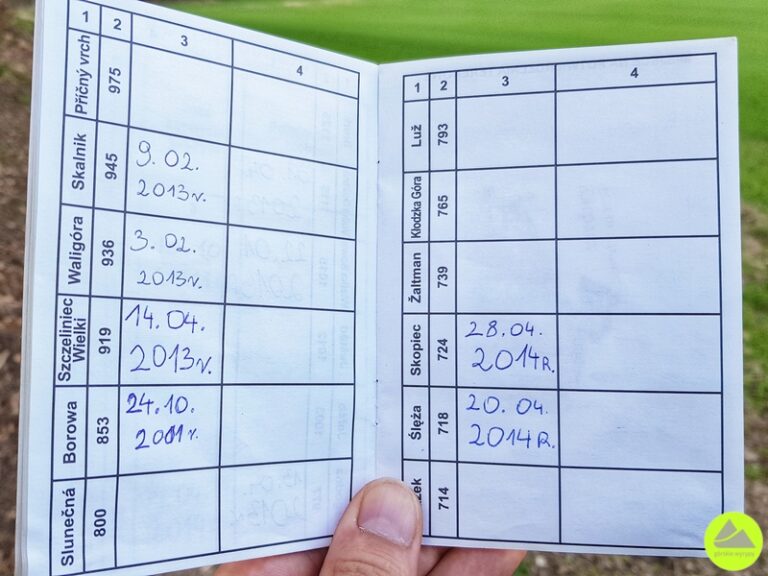 1 2 3 4
Příčný vrch 975
Skalnik 945 9.02.
2013r.
Waligóra 936 3.02.
2013r.
Szczeliniec
Wielki 919 14.04.
2013r.
Borowa 853 24.10.
Slunečná 800
1 2 3 4
Luž 793
Kłodzka Góra 765
Žaltman 739
Skopiec 724 28.04.
2014R.
Ślęża 718 20.04.
2014R.
714
górskie wyrypy